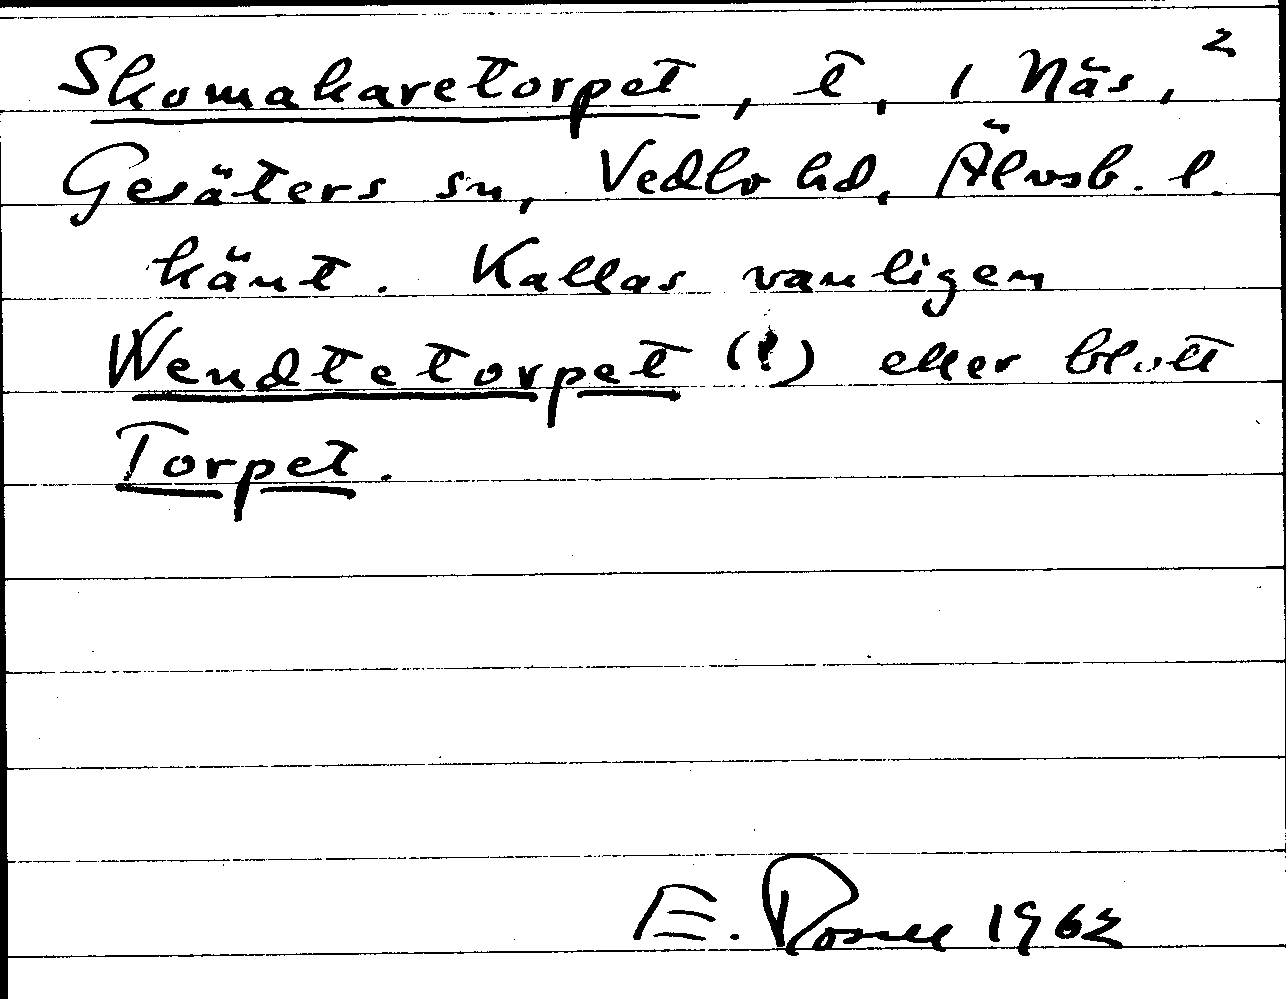 Skomakaretorpet, t, 1 Näs, 2
Gesäters sn, Vedbo hd, Älvsb. l.
känt. Kallas vanligen
Wendtetorpet (!) eller blott
Torpet.
E. Rosell 1962